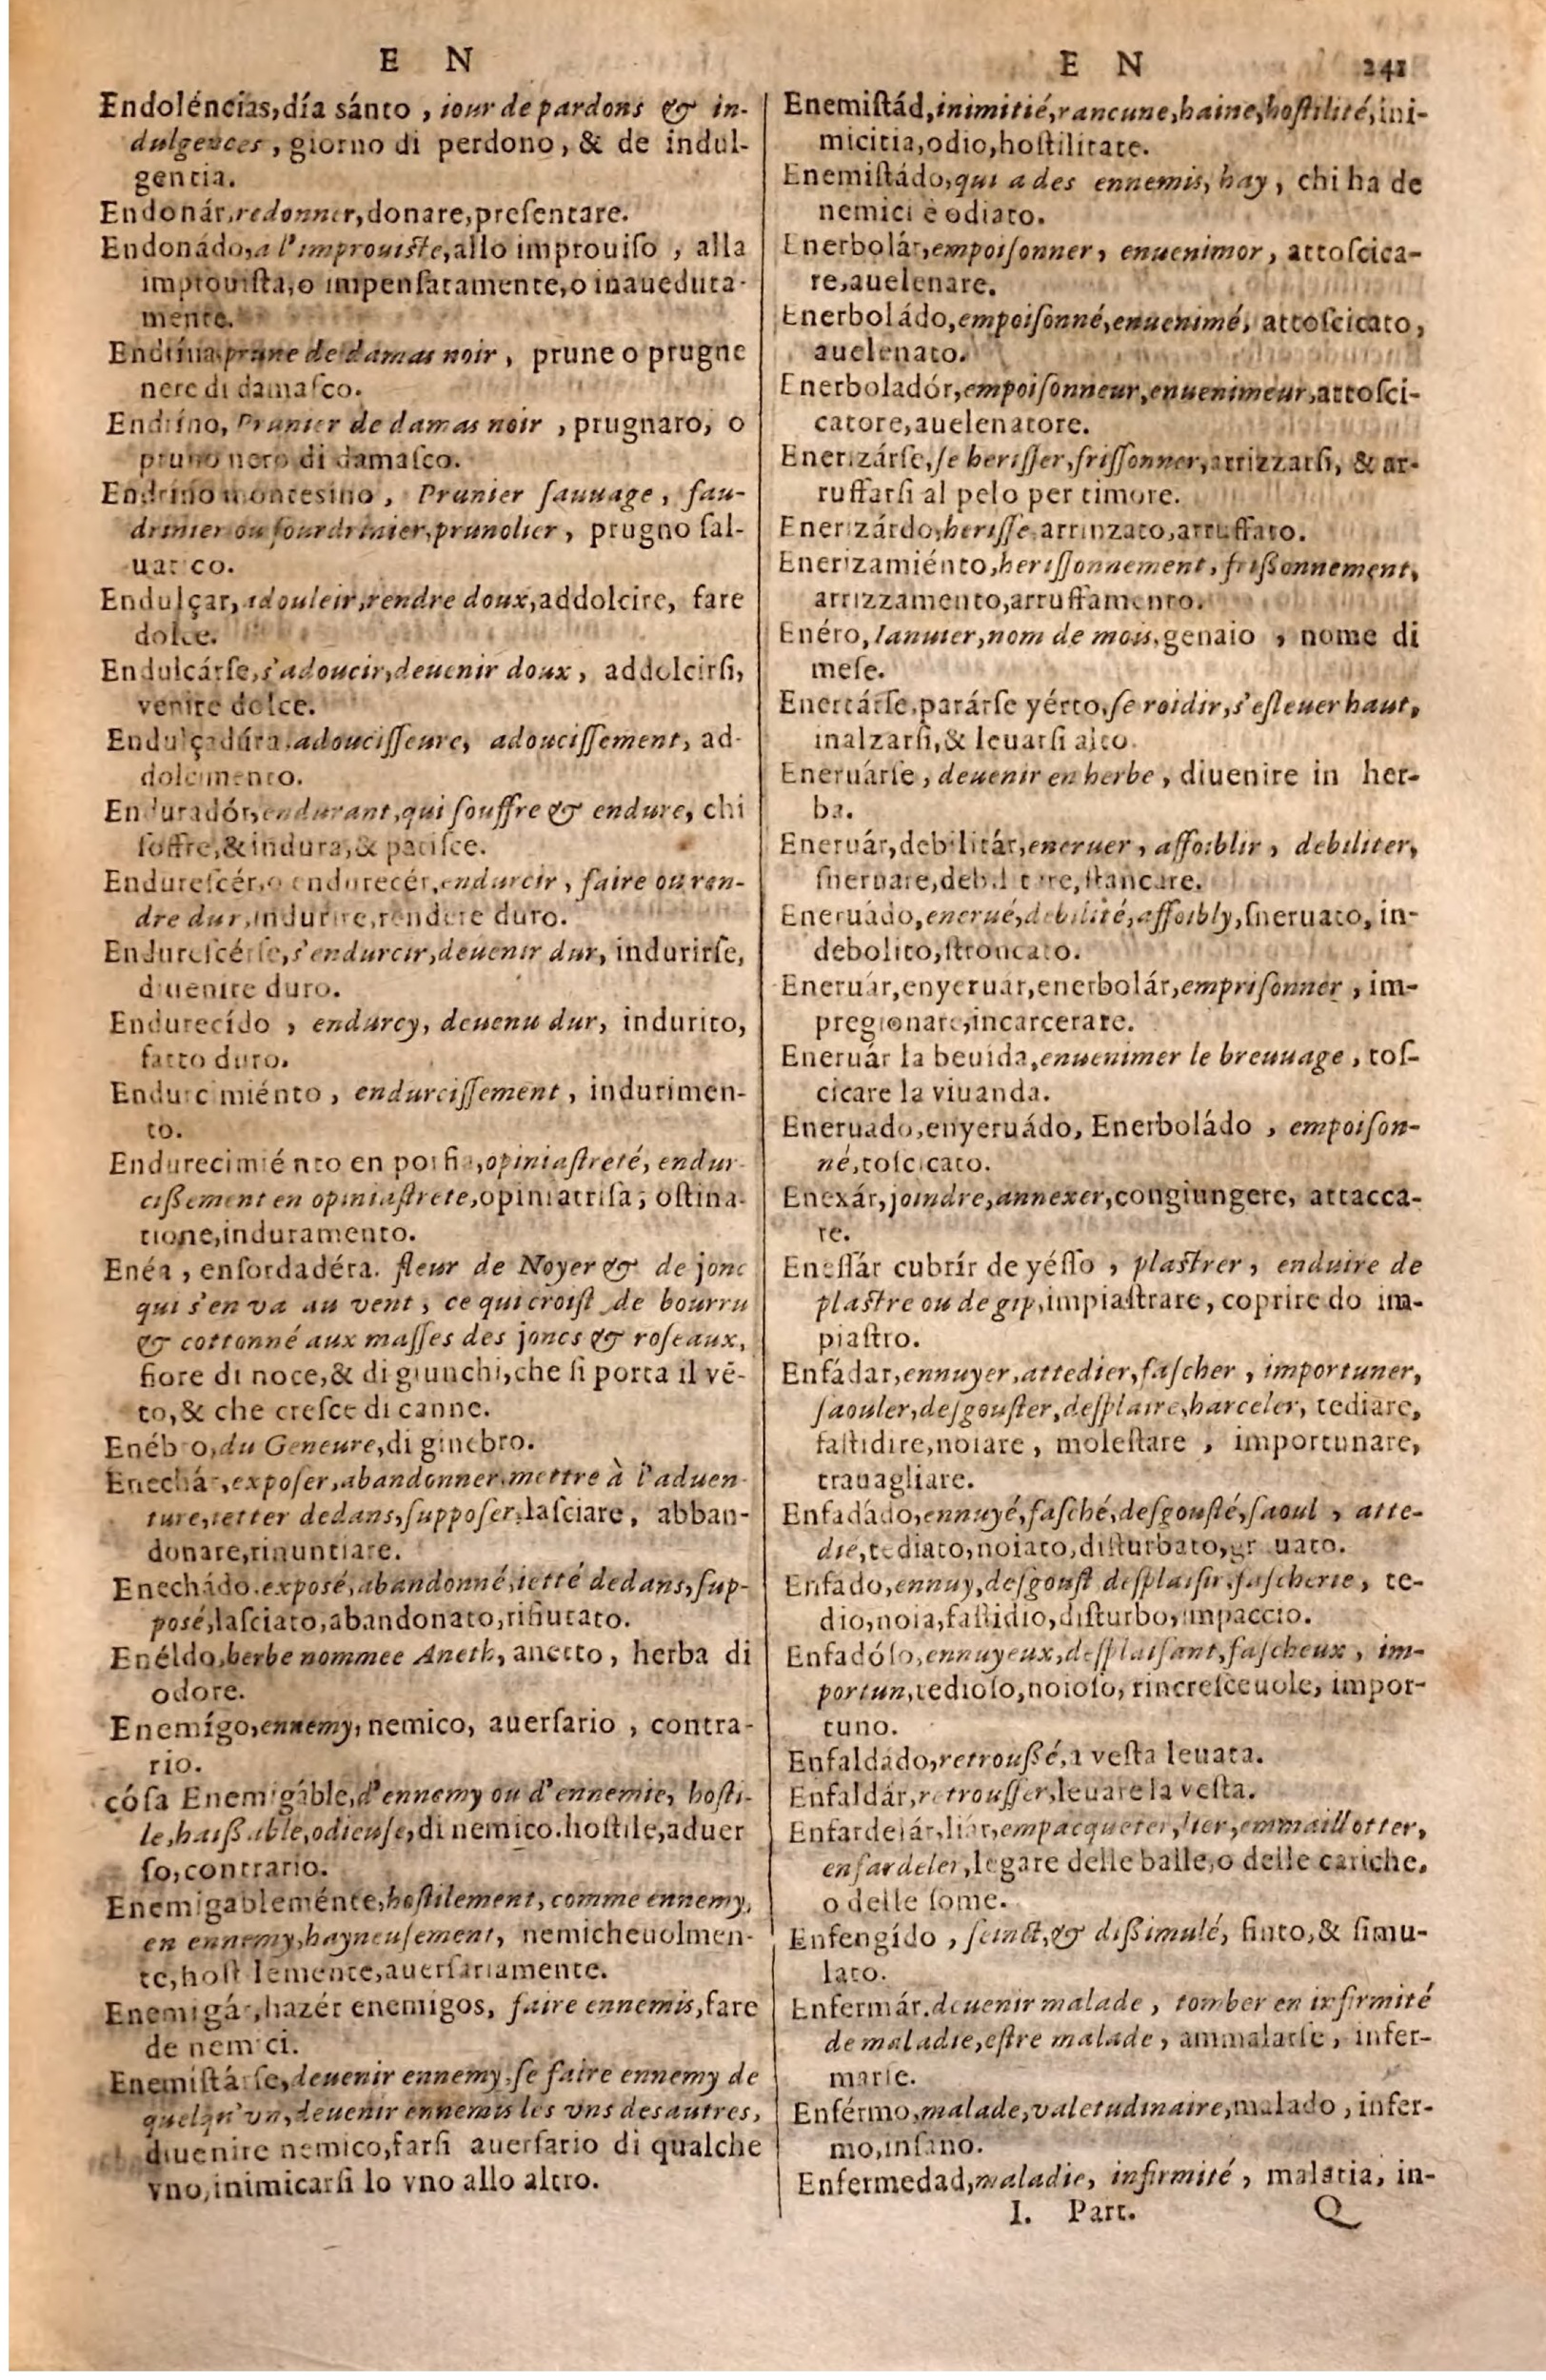 E N
Endoléncias,día sánto , iour de pardons & in-
dulgences , giorno di perdono, & de indul-
gentia.
Endonár,redonner,donare,preſentare.
Endonádo,a l'improuiſte,allo improuiſo , alla
improuiſta,o impenſatamente,o inaueduta-
mente.
Endrína,prune de damas noir , prune o prugne
nere di damaſco.
Endríno, Prunier de damas noir , prugnaro, o
pruno nero di damaſco.
Endrino montesino , Prunier ſauuage , ſau-
drinier ou ſourdrinier,prunolier , prugno ſal-
uatico.
Endulçar, adouleir,rendre doux,addolcire, fare
dolce.
Endulcárſe,s'adoucir,deuenir doux , addolcirſi,
venire dolce.
Endulçadúra,adouciſſeure, adouciſſement, ad-
dolcimento.
Enduradór,endurant,qui ſouffre & endure, chi
ſoffre,& indura,& patiſce.
Endureſcér,o endurecér,endurcir , faire ou ren-
dre dur,indurire,rendere duro.
Endureſcérſe,s'endurcir,deuenir dur, indurirſe,
diuenire duro.
Endurecído , endurcy, deuenu dur, indurito,
fatto duro.
Endurcimiénto , endurciſſement , indurimen-
to.
Endurecimiénto en porfia,opiniaſtreté, endur-
cißement en opiniaſtrete,opiniatriſa, oſtina-
tione,induramento.
Enéa , enſordadéra. fleur de Noyer & de jonc
qui s'en va au vent , ce qui croiſt de bourru
& cottonné aux maſſes des joncs & roſeaux,
fiore di noce,& di giunchi,che ſi porta il vē-
to,& che creſce di canne.
Enébro,du Geneure,di ginebro.
Enechár,expoſer,abandonner,mettre à l'aduen-
ture,ietter dedans,ſuppoſer,laſciare, abban-
donare,rinuntiare.
Enechádo.exposé,abandonné,ietté dedans,ſup-
posé,laſciato,abandonato,rifiutato.
Enéldo,herbe nommee Aneth, anetto, herba di
odore.
Enemígo,ennemy,nemico, auerſario , contra-
rio.
cóſa Enemigáble,d'ennemy ou d'ennemie, hoſti-
le,haißable,odieuſe,di nemico.hoſtile,aduer
ſo,contrario.
Enemigableménte,hoſtilement, comme ennemy,
en ennemy,hayneuſement, nemicheuolmen-
te,hoſtilemente,auerſariamente.
Enemigár,hazér enemigos, faire ennemis,fare
de nemici.
Enemiſtárſe,deuenir ennemy,ſe faire ennemy de
quelqu'vn,deuenir ennemis les vns des autres,
diuenire nemico,farſi auerſario di qualche
vno,inimicarſi lo vno allo altro.
E N 241
Enemiſtád,inimitié,rancune,haine,hoſtilité,ini-
micitia,odio,hoſtilitate.
Enemiſtádo,qui a des ennemis, hay, chi ha de
nemici è odiato.
Enerbolár,empoiſonner, enuenimor, attoſcica-
re,auelenare.
Enerboládo,empoiſonné,enuenimé, attoſcicato,
auelenato.
Enerboladór,empoiſonneur,enuenimeur,attoſci-
catore,auelenatore.
Enerizárſe,ſe heriſſer,friſſonner,arrizzarſi, & ar-
ruffarſi al pelo per timore.
Enerizárdo,heriſſe,arrinzato,arruffato.
Enerizamiénto,heriſſonnement, frißonnement,
arrizzamento,arruffamento.
Enéro,Ianuier,nom de mois,genaio , nome di
meſe.
Enertárſe,parárſe yérto,ſe roidir,s'eſleuer haut,
inalzarſi,& leuarſi alto.
Eneruárſe , deuenir en herbe , diuenire in her-
ba.
Eneruár,debilitár,eneruer , affoiblir , debiliter,
ſneruare,debilitare,ſtancare.
Eneruádo,enerué,debilité,affoibly,ſneruato, in-
debolito,ſtroncato.
Eneruár,enyeruár,enerbolár,empriſonner , im-
pregionare,incarcerare.
Eneruár la beuida,enuenimer le breuuage , toſ-
cicare la viuanda.
Eneruado,enyeruádo, Enerboládo , empoiſon-
né,toſcicato.
Enexár,joindre,annexer,congiungere, attacca-
re.
Eneſſár cubrír de yéſſo , plaſtrer , enduire de
plaſtre ou de gip,impiaſtrare, coprire do im-
piaſtro.
Enfádar,ennuyer,attedier,faſcher , importuner,
ſaouler,deſgouſter,deſplaire,harceler, tediare,
faſtidire,noiare , moleſtare , importunare,
trauagliare.
Enfadádo,ennuyé,faſché,deſgouſté,ſaoul , atte-
die,tediato,noiato,diſturbato,gr uato.
Enfado,ennuy,deſgouſt deſplaiſir,faſcherie, te-
dio,noia,faſtidio,diſturbo,impaccio.
Enfadóſo,ennuyeux,deſplaiſant,faſcheux , im-
portun,tedioſo,noioſo, rincreſceuole, impor-
tuno.
Enfaldado,retroußé,a veſta leuata.
Enfaldár,retrouſſer,leuare la veſta.
Enfardelár,liár,empacqueter,lier,emmaillotter,
enfardeler,legare delle balle,o delle cariche,
o delle ſome.
Enfengído , feinct,& dißimulé, finto,& ſimu-
lato.
Enfermár.deuenir malade , tomber en infirmité
de maladie,eſtre malade , ammalarſe , infer-
marſe.
Enférmo,malade,valetudinaire,malado , infer-
mo,inſano.
Enfermedad,maladie, infirmité , malatia, in-
I. Part. Q